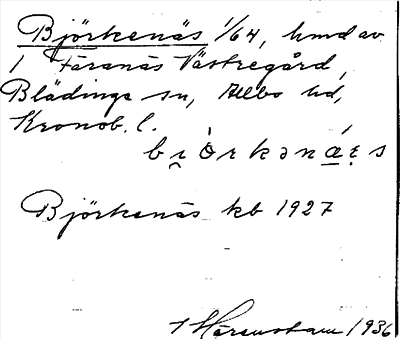 Björkenäs 1/64, hmd av
1 Täranäs Västregård,
Blädinge sn, Allbo hd,
Kronob. l.
bi̯òrkənǽ̱ṣs
Björkenäs kb 1927
1936